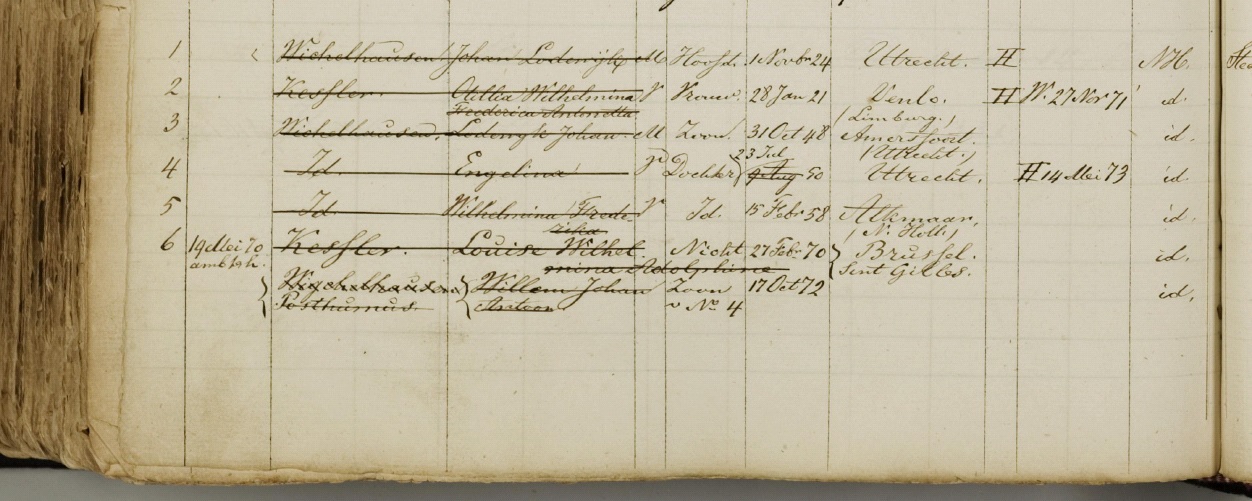 1 Wichelhausen Johan Lodewijk M Hoofd. 1 Novbr 24 Utrecht. H NH.
2 Kessler. Otillia Wilhelmina V Vrouw. 28 Jan 21 Venlo. H W. 27 Nov 71 id.
Frederica Antonetta (Limburg.)
3 Wichelhausen. Lodewijk Johan M Zoon 31 Oct 48 Amersfoort. id.
23 Jul (Utrecht.)
4 Id. Engelina V Dochter 9 Aug 50 Utrecht. H 14 Mei 73 id.
5 Id. Wilhelmina Frede- V Id. 15 Febr 58 Alkmaar, id.
rika (N. Holl.)
6 19 Mei 70 Kessler. Louise Wilhel- Nicht 27 Febr 70 Brussel. id.
ambtsh. mina Adolphine Sint Gilles.
Wichelhausen Willem Johan Zoon 17 Oct 72 id.
Posthumus. Antoon v No 4